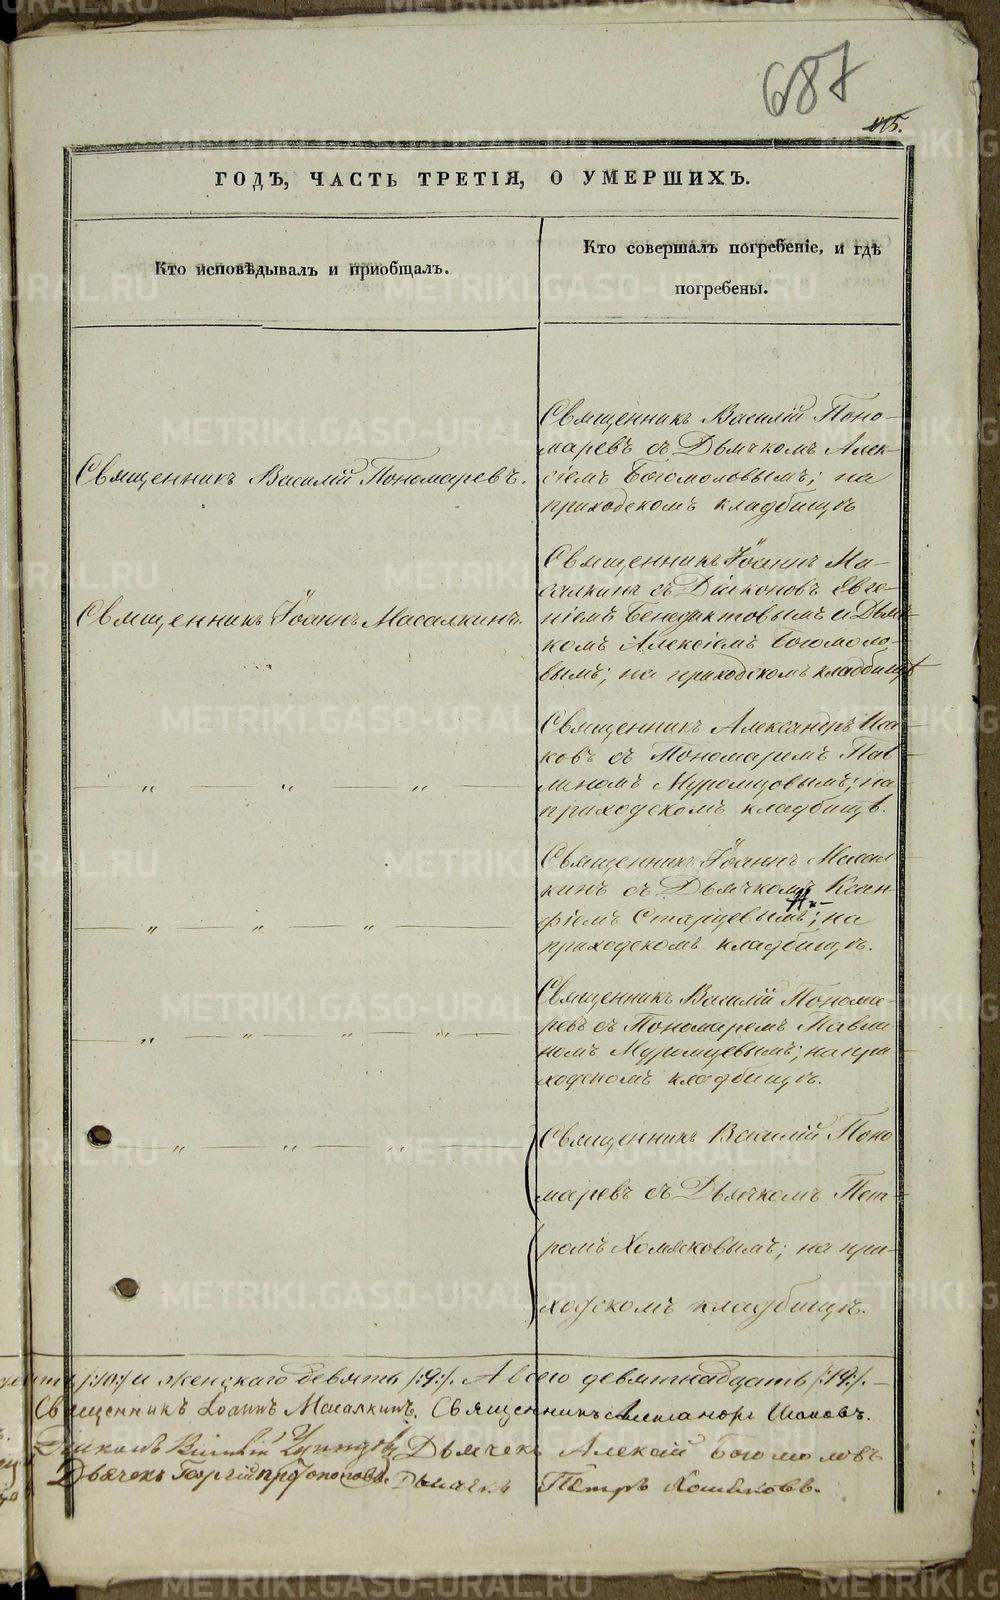 687
115.
ГОДЪ, ЧАСТЬ ТРЕТІЯ, О УМЕРШИХЪ.
Кто исповѣдывалъ и приобщалъ.
Кто совершалъ погребеніе, и гдѣ
погребены.
Священникъ Василій Пономаревъ.
Священникъ Василій Поно-
маревъ съ Дьячкомъ Алек-
сіемъ Богомоловымъ; на
приходскомъ кладбищѣ
Священникъ Іоаннъ Масалкинъ.
Священникъ Іоаннъ Ма-
салкинъ съ Діакономъ Евге-
ніемъ Бенедиктовымъ и Дьяч-
комъ Алексіемъ Богомоло-
вымъ; на приходскомъ кладбищѣ
— „ — „ — „ —
Священникъ Александръ Иса
ковъ съ Пономаремъ Пав
линомъ Муромцовымъ; на
приходскомъ кладбищѣ.
— „ — „ — „ —
Священникъ Іоаннъ Масал
кинъ съ Дьячкомъ Ксан
фіемъ Старцевымъ; на
приходскомъ кладбищѣ.
— „ — „ — „ — „ —
Священникъ Василій Понома-
ревъ съ Пономаремъ Павли
номъ Муромцевымъ; на при
ходскомъ кладбищѣ.
„ — „ — „ —
Священникъ Василій Поно
маревъ съ Дьячкомъ Пет-
ромъ Хомяковымъ; на при-
ходскомъ кладбищѣ.
/:10:/ и женскаго девять /:9:/. А всего девятнадцать /:19:/. —
Священникъ Іоаннъ Масалкинъ. Священникъ Александръ Исаковъ.
Діаконъ Дьячекъ Алексій Богомоловъ
Дьячекъ Георгій Протопоповъ. Дьячекъ Петръ Хомяковъ.
METRIKI.GASO-URAL.RU